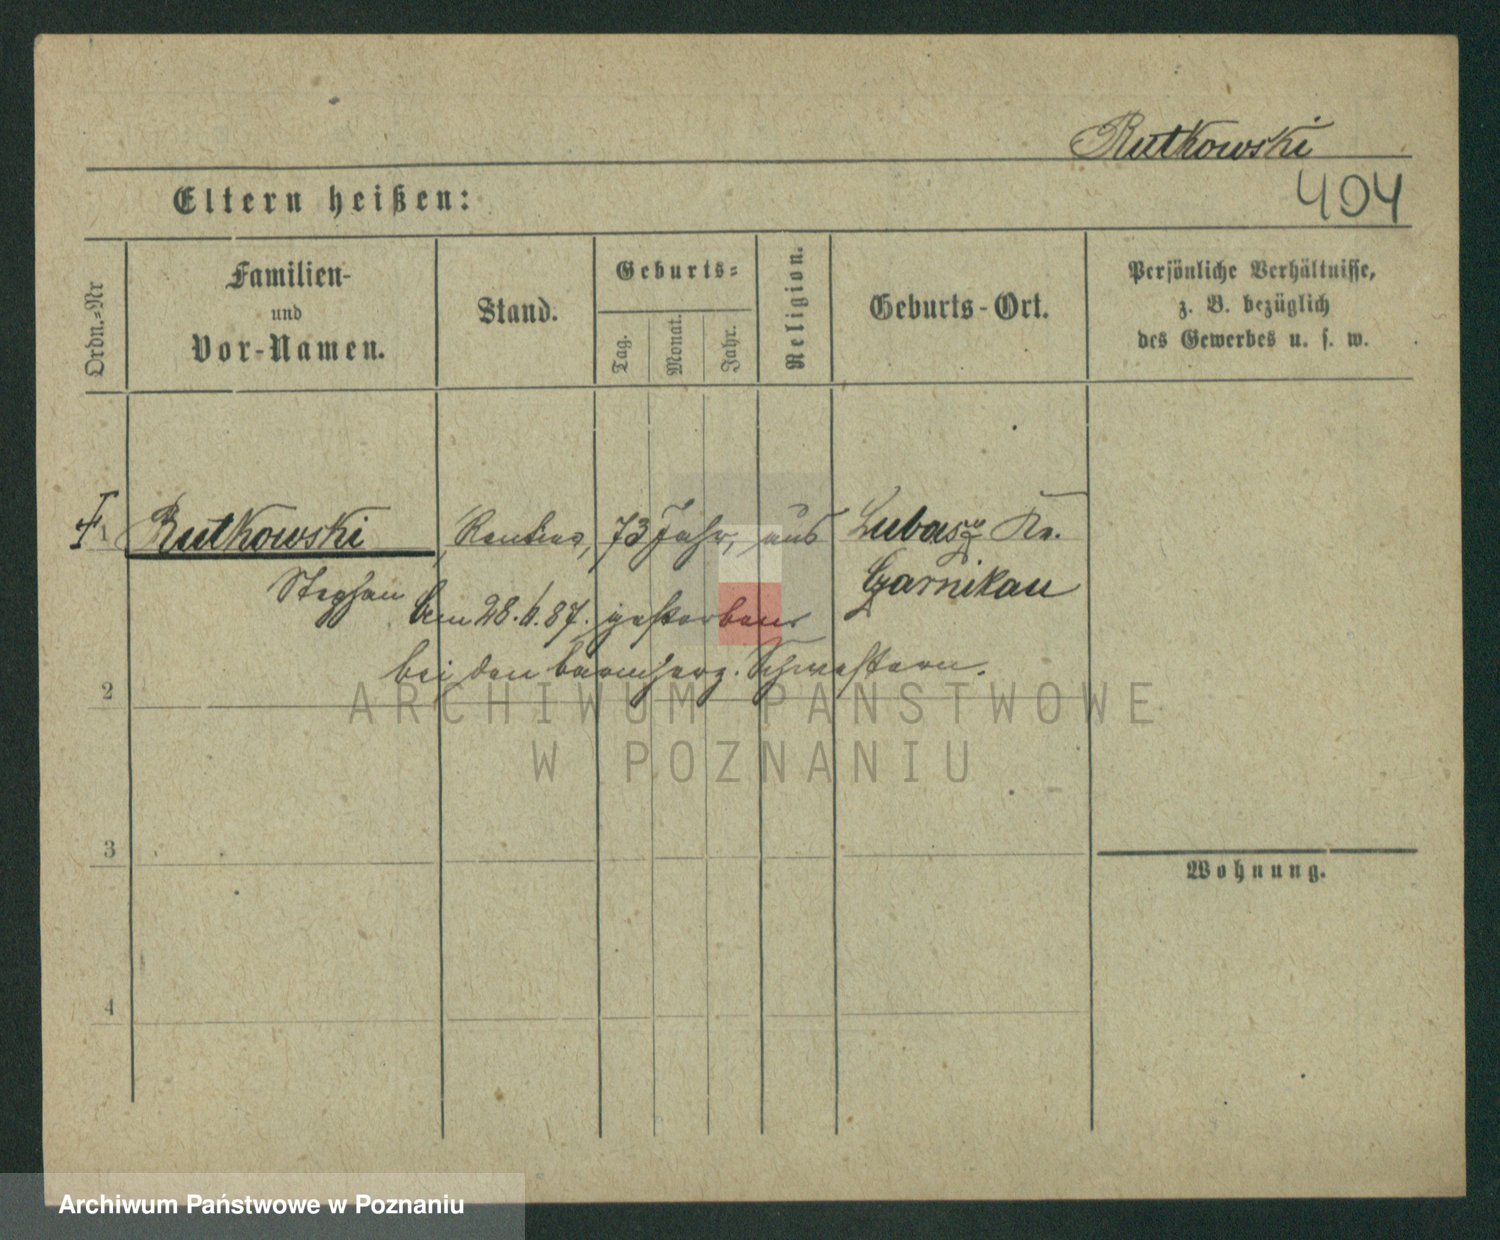 Rutkowski
404
Eltern heißen:
Ordn.-Nr
Familien-
und
Vor-Namen.
Stand.
Geburts-
Tag.
Monat.
Jahr.
Religion.
Geburts-Ort.
Persönliche Verhältnisse,
z. B. bezüglich
des Gewerbes u. s. w.
1 Rutkowski, Rentier, 73 Jahr, aus Lubasz Kr.
Stephan Czarnikau
am 28.6.87. gestorben
bei den barmherz. Schwestern.
2
3
4
Wohnung.
ARCHIWUM PAŃSTWOWE
W POZNANIU
Archiwum Państwowe w Poznaniu